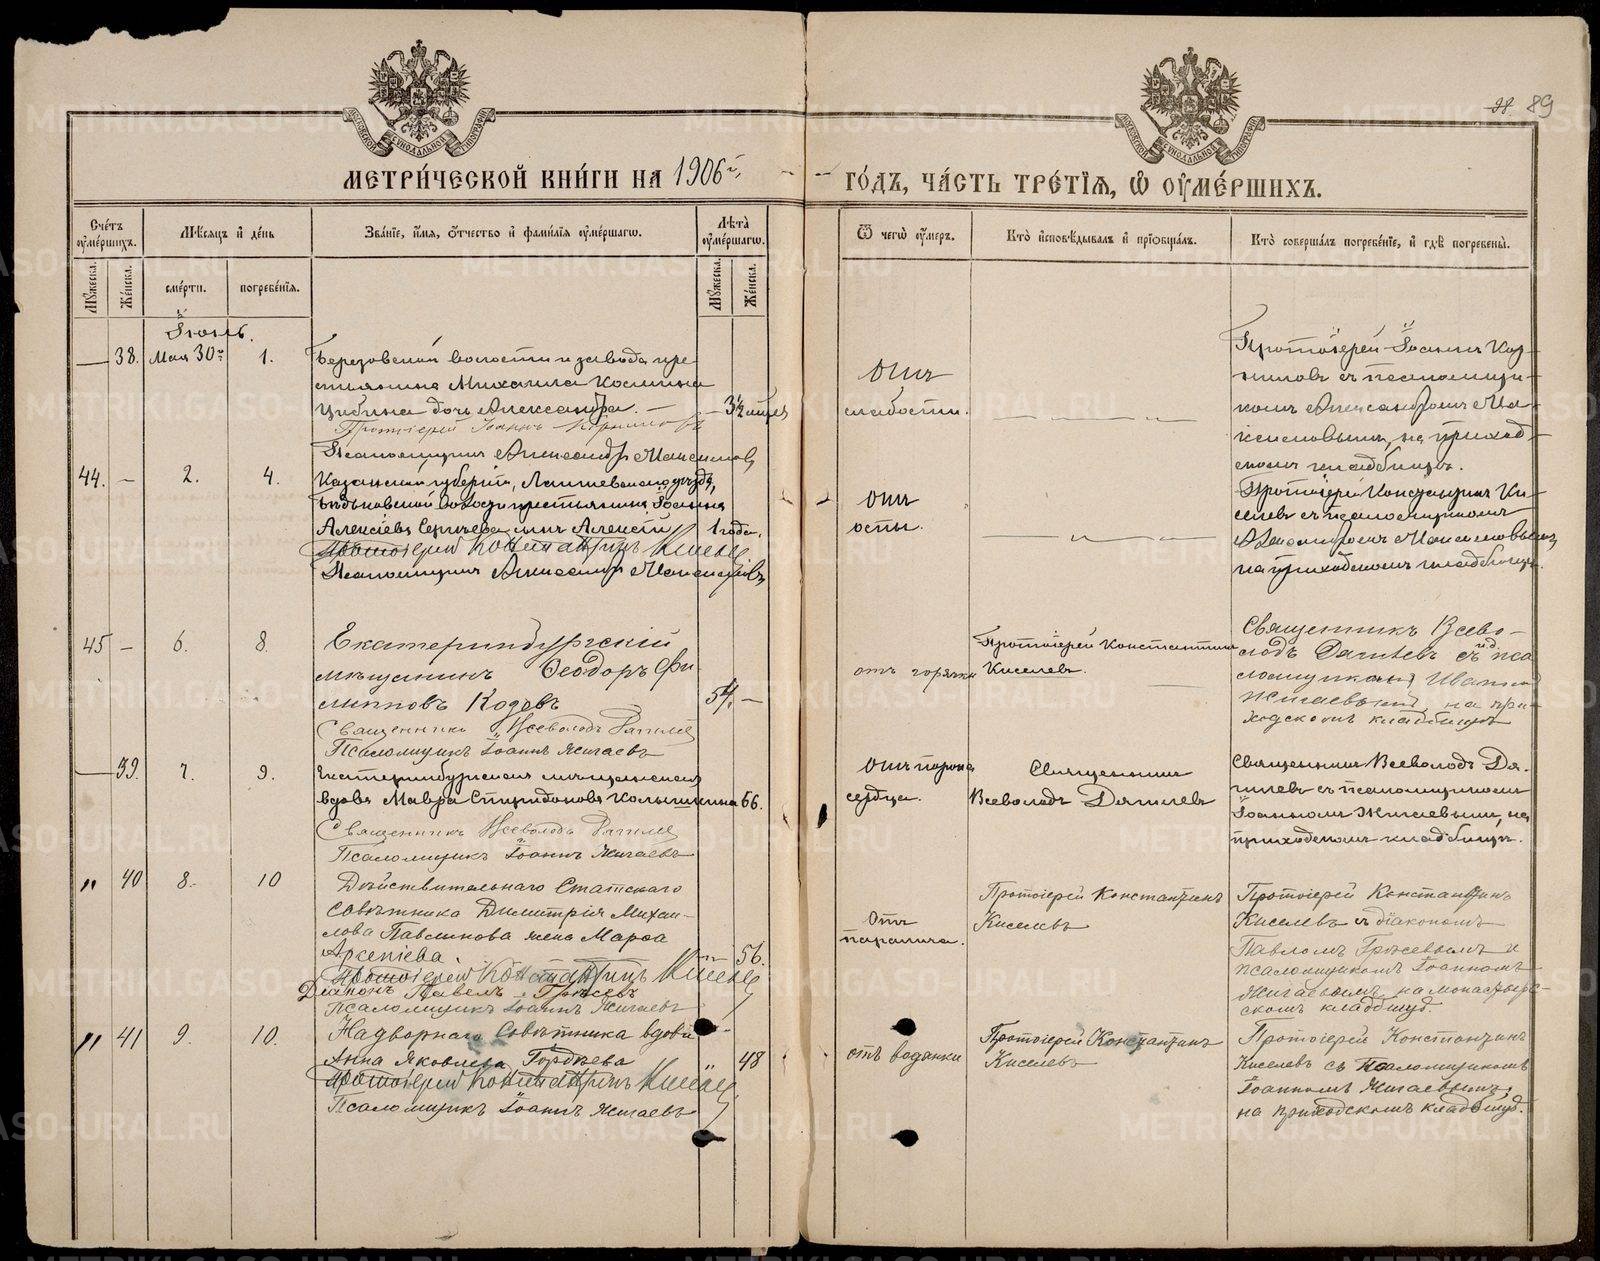 МОСКОВСКОЙ СѴНОДАЛЬНОЙ ТИПОГРАФІИ
МОСКОВСКОЙ СѴНОДАЛЬНОЙ ТИПОГРАФІИ
28 89
МЕТРИ́ЧЕСКОЙ КНИ́ГИ НА 1906й,
ГО́ДЪ, ЧА́СТЬ ТРЕ́ТІѦ, Ѡ҆ ОУ҆МЕ́РШИХЪ.
Сче́тъ оу҆ме́ршихъ.
Мѣ́сяцъ и҆ де́нь
Зва́ніе, и҆́мя, ѻ҆́тчество и҆ фами́лія оу҆ме́ршагѡ.
Лѣ́та оу҆ме́ршагѡ.
Ѿ чегѡ̀ оу҆́меръ.
Кто̀ и҆сповѣ́дывалъ и҆ прїѡбща́лъ.
Кто̀ соверша́лъ погребе́ніе, и҆ гдѣ̀ погребены̀.
Мꙋ́жеска.
Же́нска.
сме́рти.
погребе́нія.
Мꙋ́жеска.
Же́нска.
Іюнь.
— 38. Мая 30го 1.
Березовской волости и завода кре-
стьянина Михаила Космина
Цыбина дочь Александра. —
Протоіерей Іоаннъ Корниловъ
Псаломщикъ Александръ Максимовъ
Отъ
слабости.
Протоіерей Іоаннъ Кор-
ниловъ съ псаломщи-
комъ Александромъ Ма-
ксимовымъ, на приход-
скомъ кладбищѣ.
44. — 2. 4.
Казанской губерніи, Лаишевскаго уѣзда,
волости крестьянина Іоанна
Алексѣева сынъ Алексѣй 1 года.
Протоіерей Константинъ Киселевъ
Псаломщикъ Александръ Максимовъ
Отъ
оспы.
Протоіерей Константинъ Ки-
селевъ съ псаломщикомъ
Александромъ Максимовымъ,
на приходскомъ кладбищѣ.
45 — 6. 8.
Екатеринбургскій
мѣщанинъ Ѳеодоръ Фи-
липповъ Кодовъ 54. —
Священникъ Всеволодъ Дягилевъ
Псаломщикъ Іоаннъ Жигаевъ
отъ горячки
Протоіерей Константинъ
Киселевъ.
Священникъ Всево-
лодъ Дягилевъ съ пса
ломщикомъ Иваномъ
Жигаевымъ, на при-
ходскомъ кладбищѣ
— 39. 7. 9.
Екатеринбургская мѣщанская
вдова Мавра Спиридонова Колышкина 66.
Священникъ Всеволодъ Дягилевъ
Псаломщикъ Іоаннъ Жигаевъ
Отъ порока
сердца.
Священникъ
Всеволодъ Дягилевъ
Священникъ Всеволодъ Дя-
гилевъ съ псаломщикомъ
Іоанномъ Жигаевымъ, на
приходскомъ кладбищѣ.
" 40 8. 10
Дѣйствительнаго Статскаго
совѣтника Димитрія Михаи-
лова Павлинова жена Марѳа
Арсеніева 56.
Протоіерей Константинъ Киселевъ
Діаконъ Павелъ Грѣсевъ
Псаломщикъ Іоаннъ Жигаевъ
Отъ
паралича.
Протоіерей Константинъ
Киселевъ
Протоіерей Константинъ
Киселевъ съ діакономъ
Павломъ Грѣсевымъ и
псаломщикомъ Іоанномъ
Жигаевымъ, на монастыр-
скомъ кладбищѣ.
" 41 9. 10.
Надворнаго Совѣтника вдова
Анна Яковлева Гордѣева 48
Протоіерей Константинъ Киселевъ
Псаломщикъ Іоаннъ Жигаевъ
отъ водянки
Протоіерей Константинъ
Киселевъ
Протоіерей Константинъ
Киселевъ съ Псаломщикомъ
Іоанномъ Жигаевымъ,
на приходскомъ кладбищѣ.
METRIKI.GASO-URAL.RU